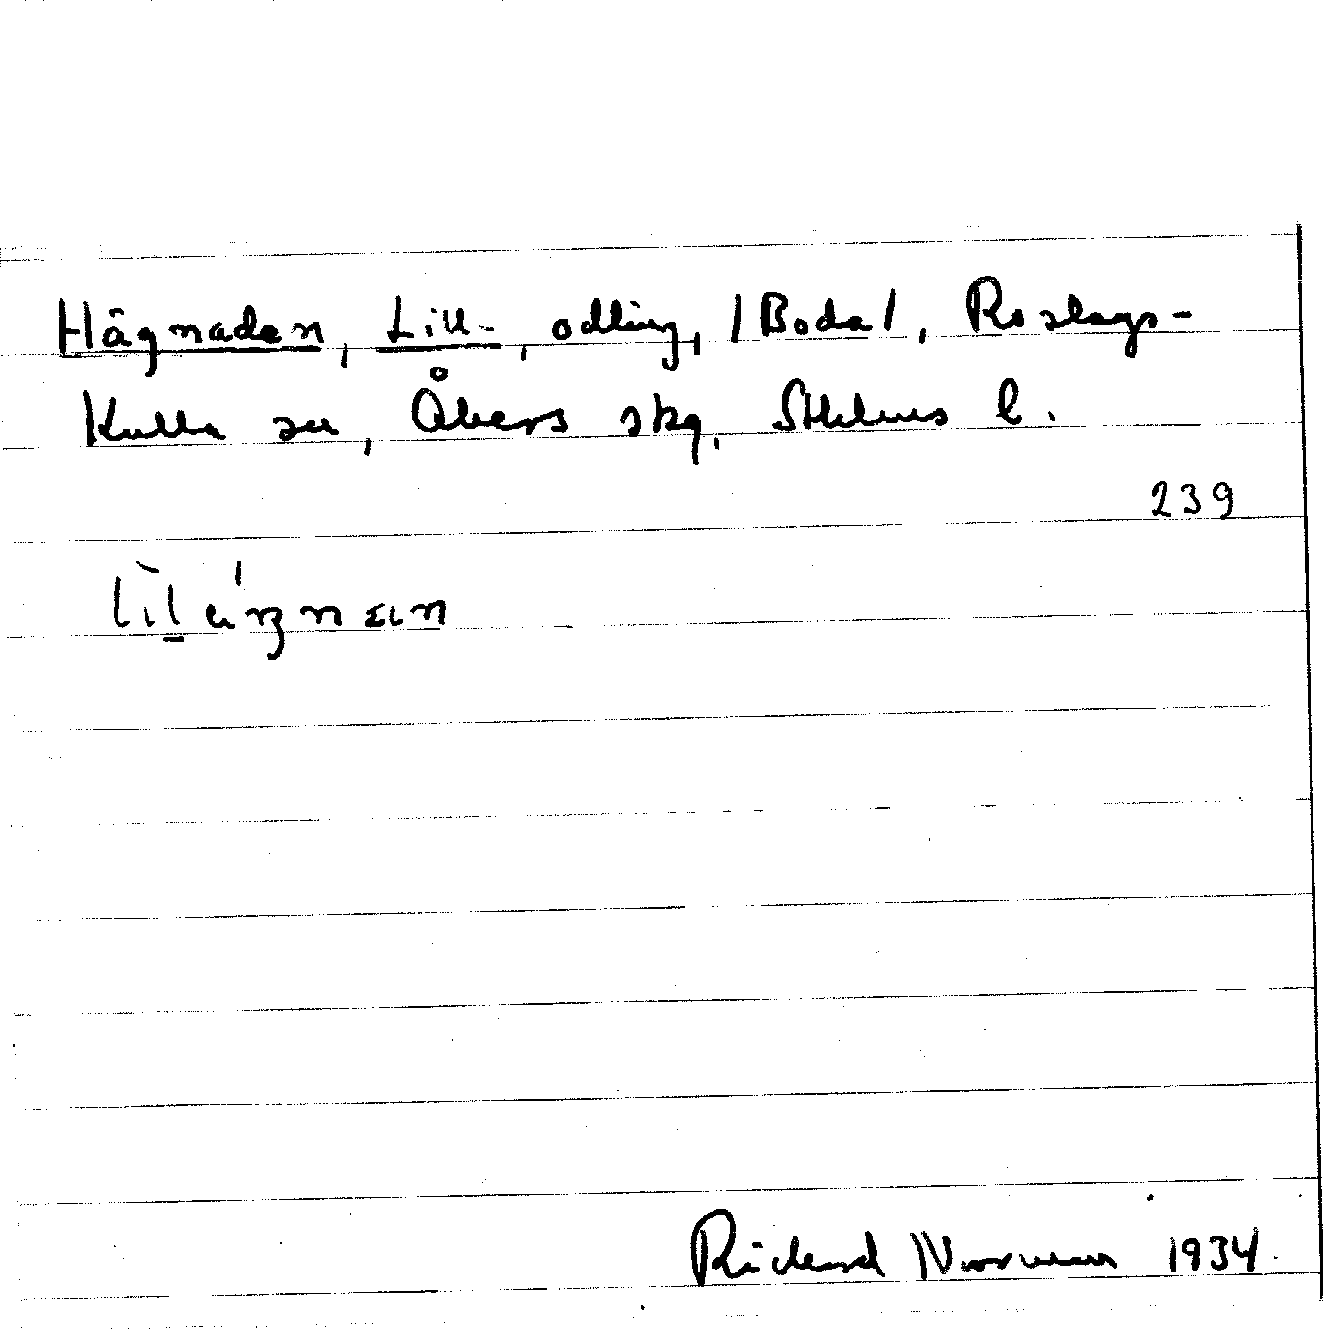 Hägnaden, Lill-, odling, /Boda/, Roslags-
Kulla sn, Åkers skg, Sthlms l.
239
Richard Norrman 1934